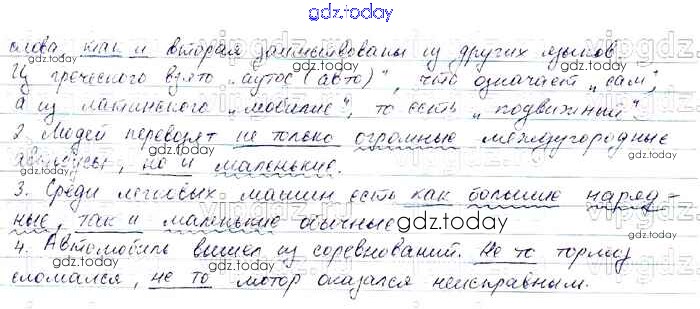 gdz.today
слова, как и вторая заимствованы из других языков.
Из греческого взято „аутос (авто)", что означает „сам",
а из латинского „мобилис", то есть „подвижный".
2. Людей перевозят не только огромные междугородные
автобусы, но и маленькие.
3. Среди легковых машин есть как большие наряд-
ные, так и маленькие обычные.
4. Автомобиль вышел из соревнований. Не то тормоз
сломался, не то мотор оказался неисправным.
gdz.today